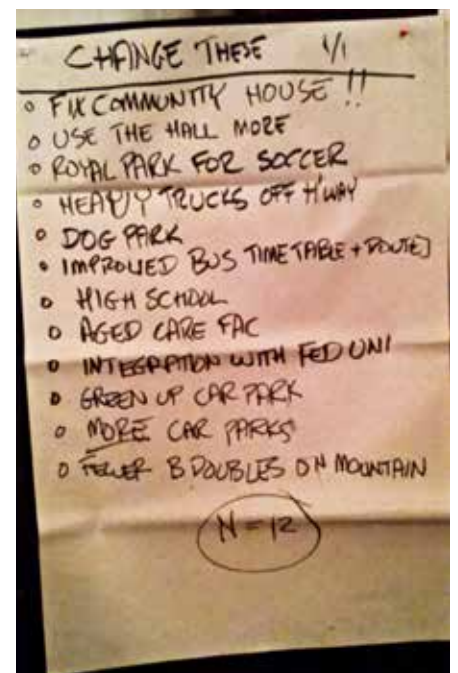 CHANGE THESE 1/1
FIX COMMUNITY HOUSE !!
USE THE HALL MORE
ROYAL PARK FOR SOCCER
HEAVY TRUCKS OFF H'WAY
DOG PARK
IMPROVED BUS TIMETABLE + ROUTE]
HIGH SCHOOL
AGED CARE FAC
INTEGRATION WITH FED UNI
GREEN UP CAR PARK
MORE CAR PARKS
FEWER B DOUBLES ON MOUNTAIN
N = 12